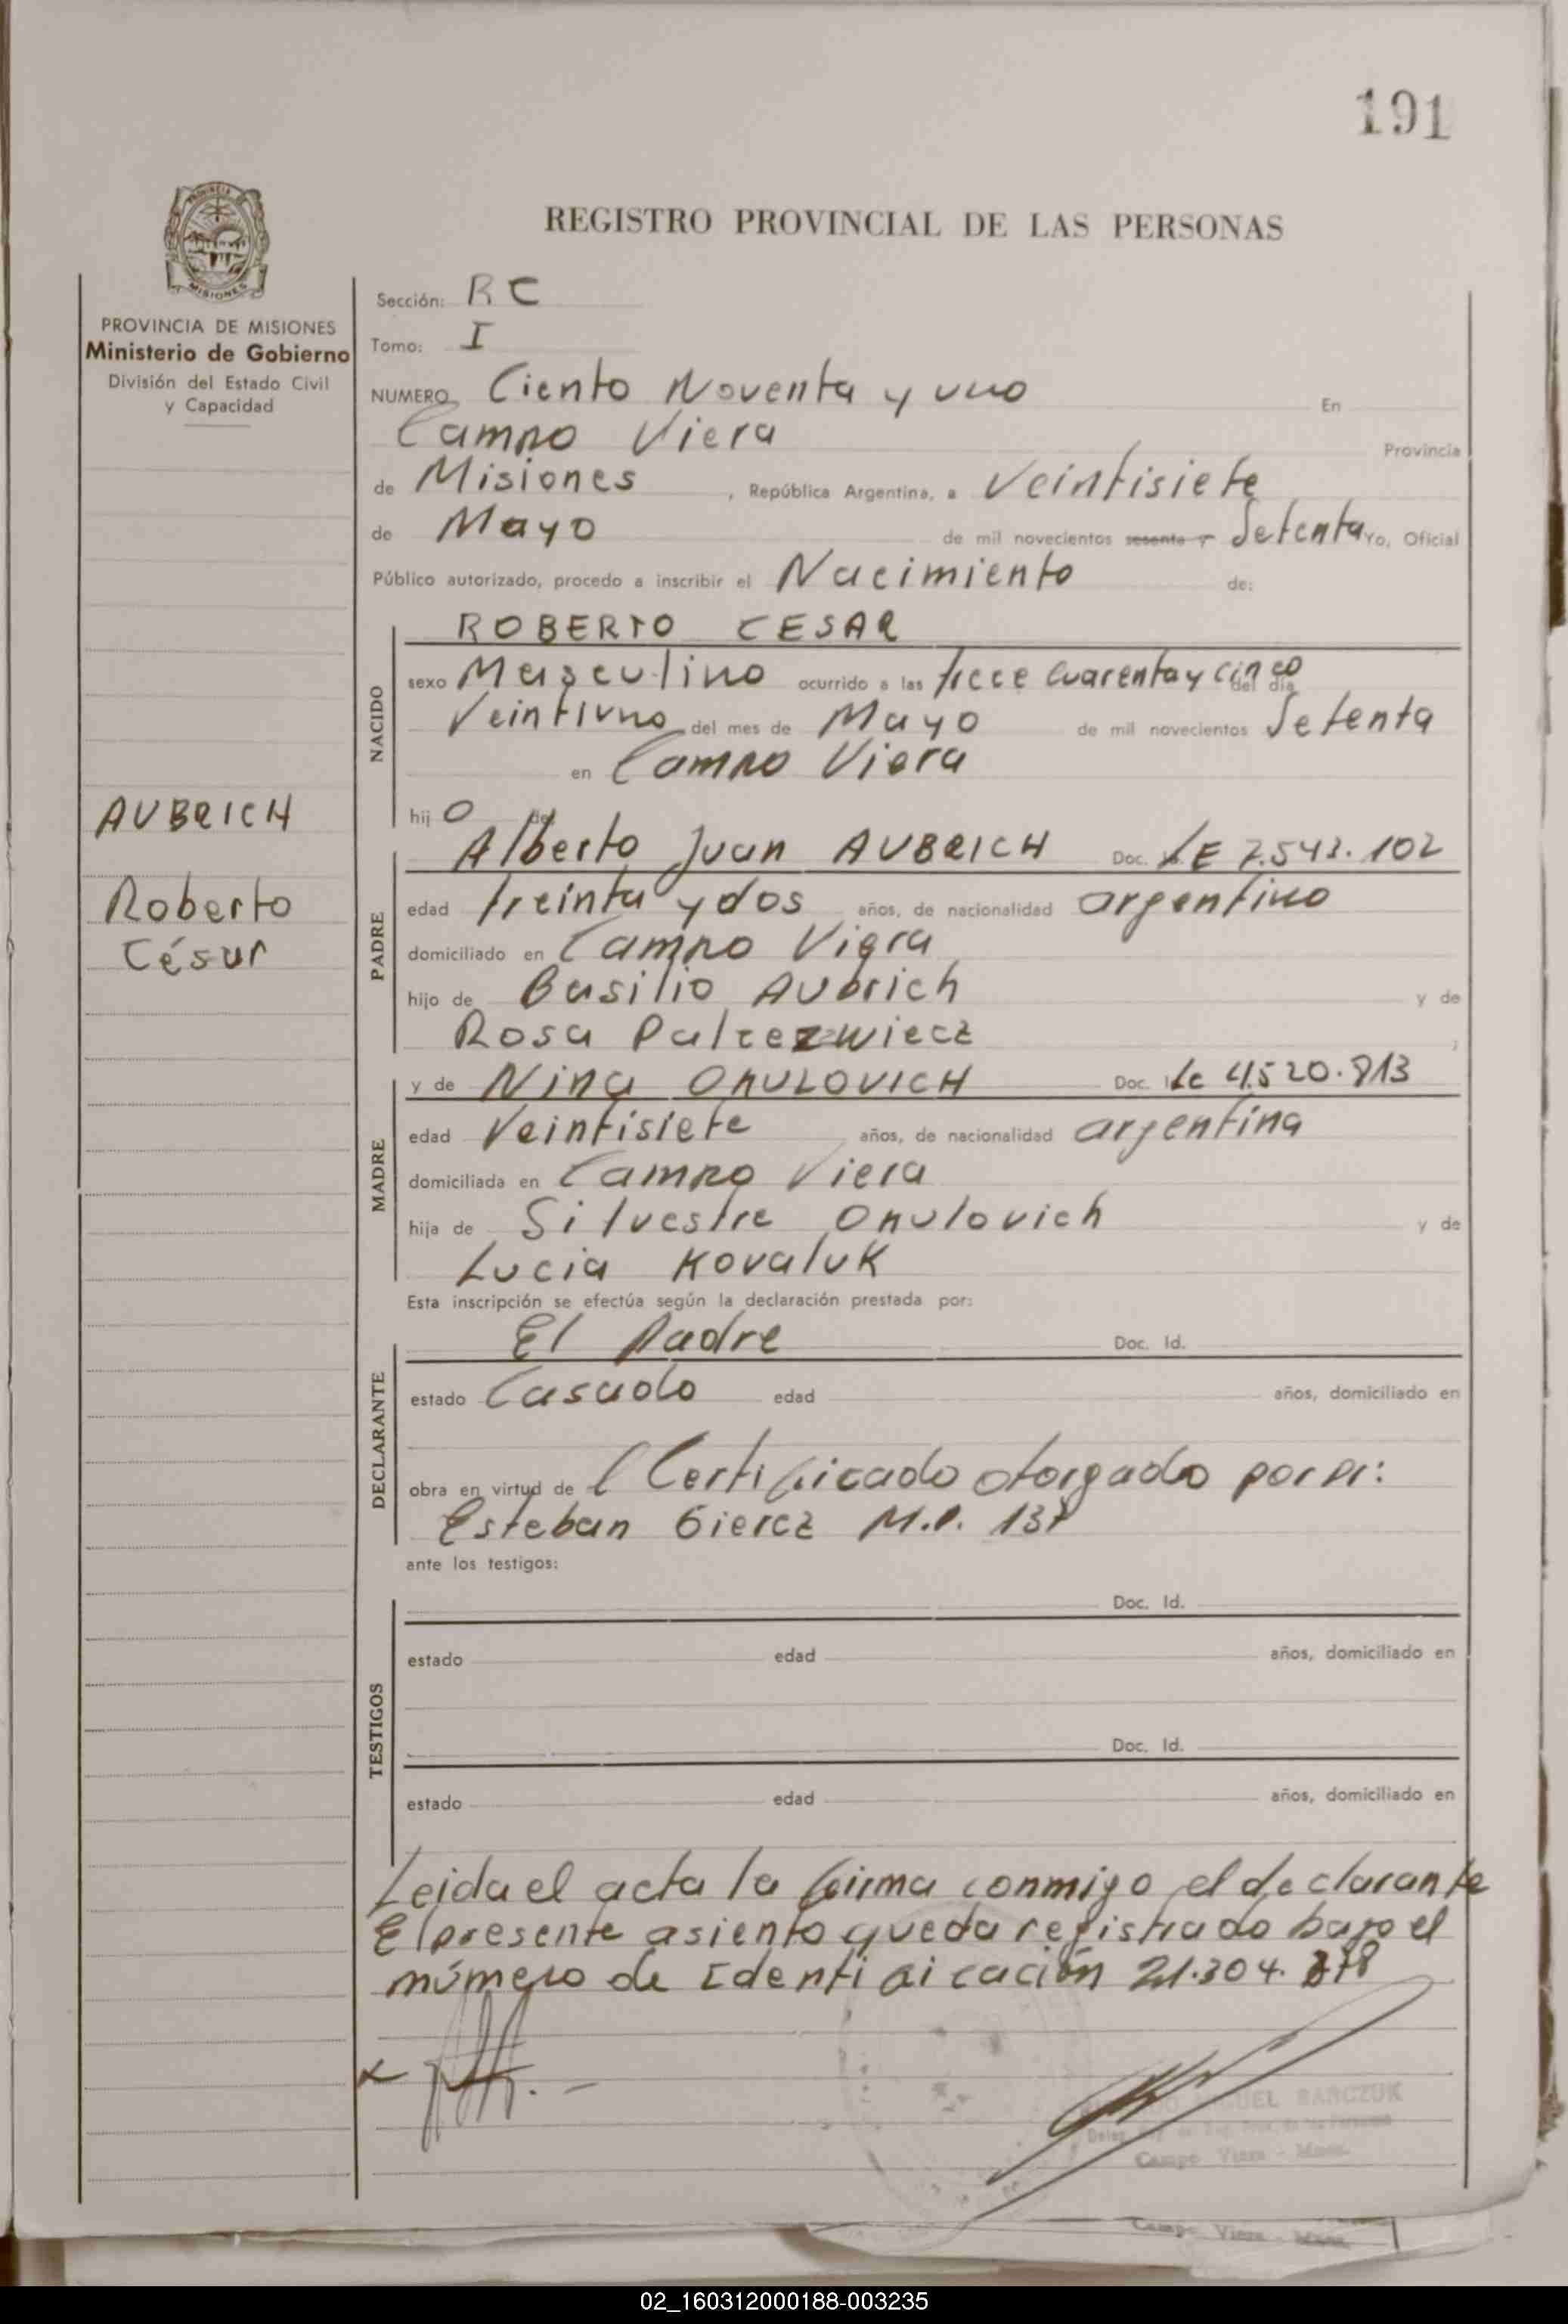 191
REGISTRO PROVINCIAL DE LAS PERSONAS
PROVINCIA DE MISIONES
Ministerio de Gobierno
División del Estado Civil
y Capacidad
AUBRICH
Roberto
César
Sección: RC
Tomo: I
NUMERO Ciento Noventa y uno En
Campo Viera Provincia
de Misiones , República Argentina, a Veintisiete
de Mayo de mil novecientos sesenta y Setenta Yo, Oficial
Público autorizado, procedo a inscribir el Nacimiento de:
NACIDO
ROBERTO CESAR
sexo Masculino ocurrido a las trece cuarenta y cinco del día
Veintiuno del mes de Mayo de mil novecientos Setenta
en Campo Viera
hij o de
PADRE
Alberto Juan AUBRICH Doc. LE 7.543.102
edad treinta y dos años, de nacionalidad argentino
domiciliado en Campo Viera
hijo de Basilio Aubrich y de
Rosa Palcezwiecz
MADRE
y de Nina ONULOVICH Doc. Lc 4.520.813
edad Veintisiete años, de nacionalidad argentina
domiciliada en Campo Viera
hija de Silvestre Onulovich y de
Lucia Kovaluk
Esta inscripción se efectúa según la declaración prestada por:
DECLARANTE
El Padre Doc. Id.
estado Casado edad años, domiciliado en
obra en virtud de l Certificado otorgado por Dr:
Esteban Giercz M.P. 137
ante los testigos:
TESTIGOS
Doc. Id.
estado edad años, domiciliado en
Doc. Id.
estado edad años, domiciliado en
Leida el acta la firma conmigo el declarante
El presente asiento queda registrado bajo el
número de Identificación 21.304.378
GUEL BARCZUK
Campo Viera - Mnes.
Campo Viera - Mnes.
02_160312000188-003235